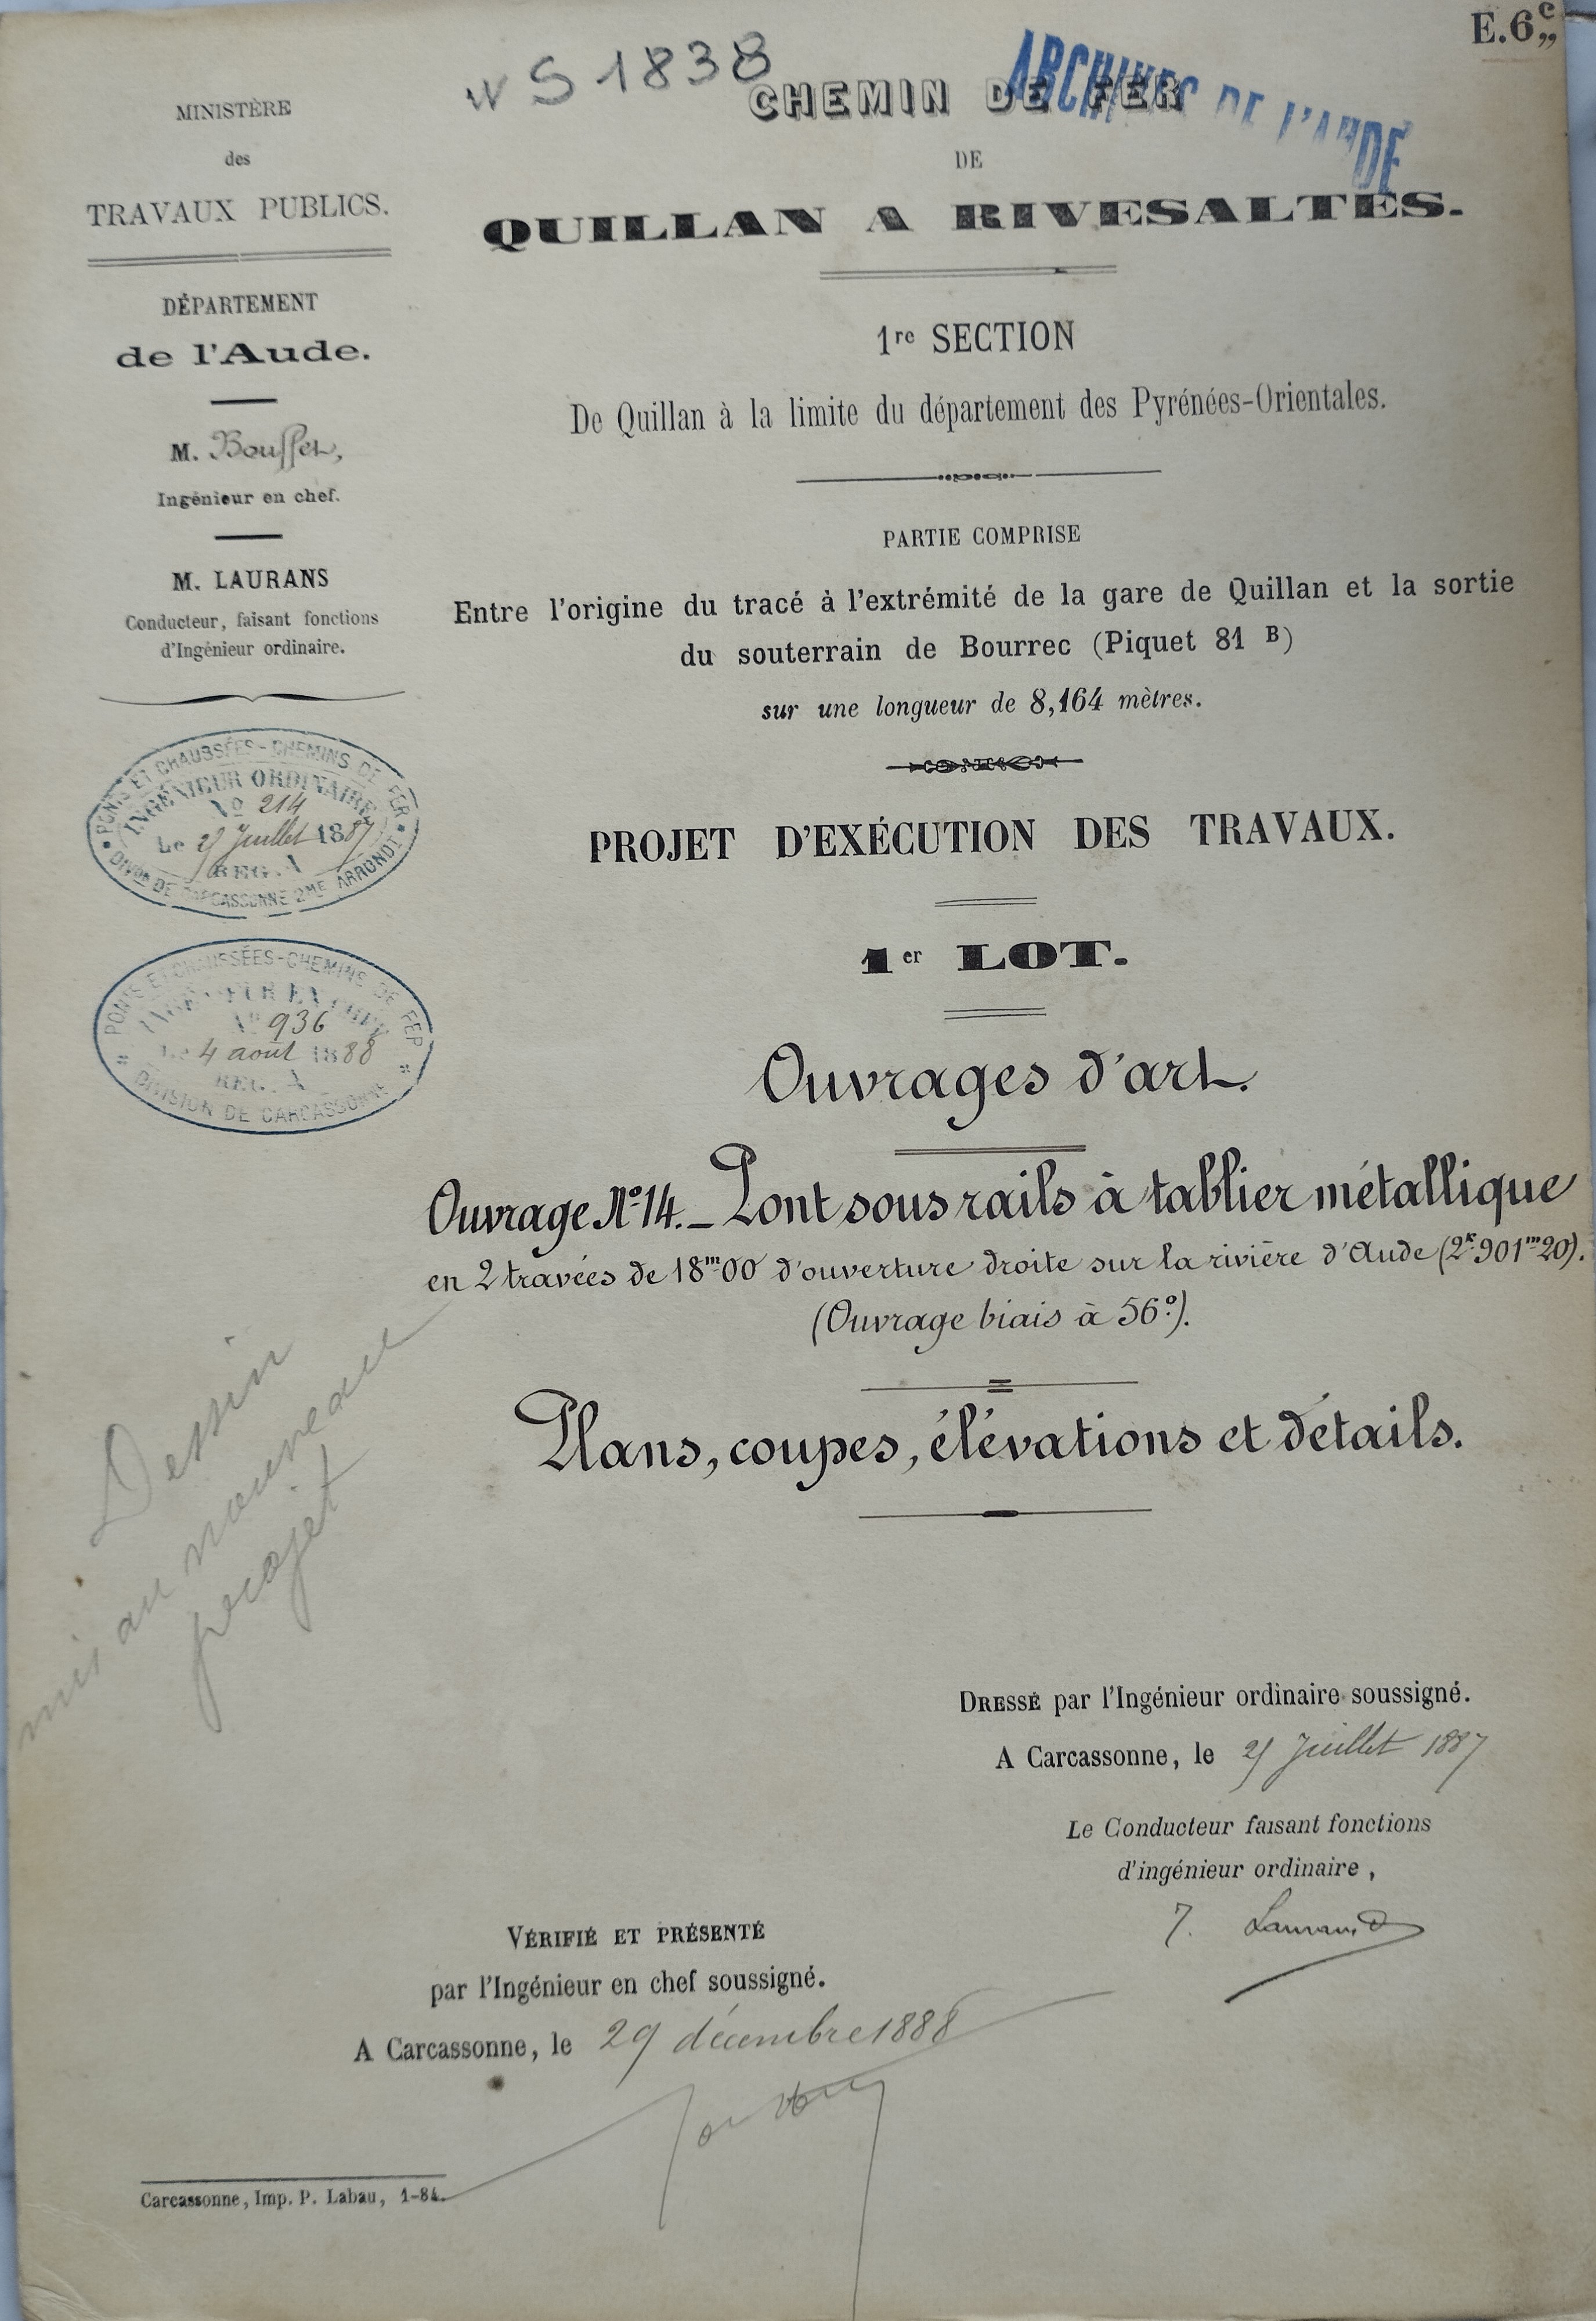 E.6c„
WS1838
ARCHIVES DE L'AUDE
MINISTÈRE
des
TRAVAUX PUBLICS.
DÉPARTEMENT
de l'Aude.
M. Bouffet,
Ingénieur en chef.
M. LAURANS
Conducteur, faisant fonctions
d'Ingénieur ordinaire.
PONTS ET CHAUSSÉES - CHEMINS DE FER
INGÉNIEUR ORDINAIRE
No 214
Le Juillet 1887
REG. A
DIVon DE CARCASSONNE 2ME ARRONDt
PONTS ET CHAUSSÉES - CHEMINS DE FER
INGÉNIEUR EN CHEF
No 936
Le 4 août 1888
REG. A
DIVISION DE CARCASSONNE
CHEMIN DE FER
DE
QUILLAN A RIVESALTES.
1re SECTION
De Quillan à la limite du département des Pyrénées-Orientales.
PARTIE COMPRISE
Entre l'origine du tracé à l'extrémité de la gare de Quillan et la sortie
du souterrain de Bourrec (Piquet 81 B)
sur une longueur de 8,164 mètres.
PROJET D'EXÉCUTION DES TRAVAUX.
1er LOT.
Ouvrages d'art.
Ouvrage No 14. _ Pont sous rails à tablier métallique
en 2 travées de 18m00 d'ouverture droite sur la rivière d'Aude (2K.901m20).
(Ouvrage biais à 56o).
Plans, coupes, élévations et détails.
Dessin
mis au nouveau
projet
DRESSÉ par l'Ingénieur ordinaire soussigné.
A Carcassonne, le Juillet 1887
Le Conducteur faisant fonctions
d'ingénieur ordinaire,
J. Laurans
VÉRIFIÉ ET PRÉSENTÉ
par l'Ingénieur en chef soussigné.
A Carcassonne, le 29 décembre 1888
Carcassonne, Imp. P. Labau, 1-84.